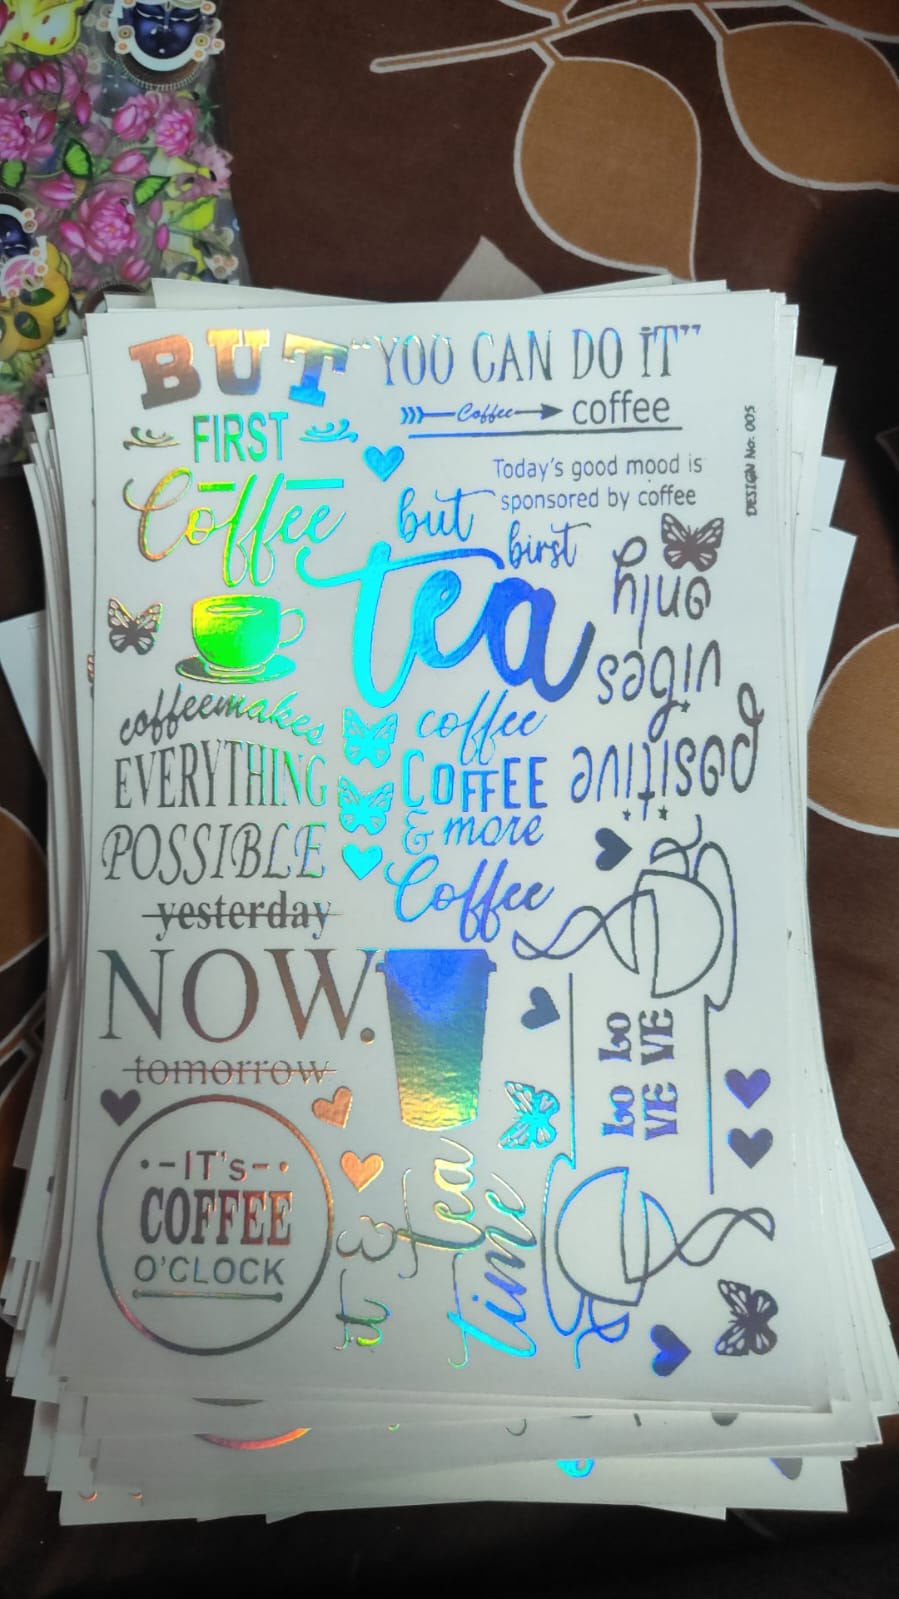 BUT
FIRST
Coffee
"YOU CAN DO IT"
Coffee coffee
Today's good mood is
sponsored by coffee
DESIGN No: 005
but
birst
tea
positive
vibes
only
coffeemakes
EVERYTHING
POSSIBLE
coffee
COFFEE
& more
Coffee
yesterday
NOW.
tomorrow
LO LO
VE VE
IT's
COFFEE
O'CLOCK
it &
tea
time